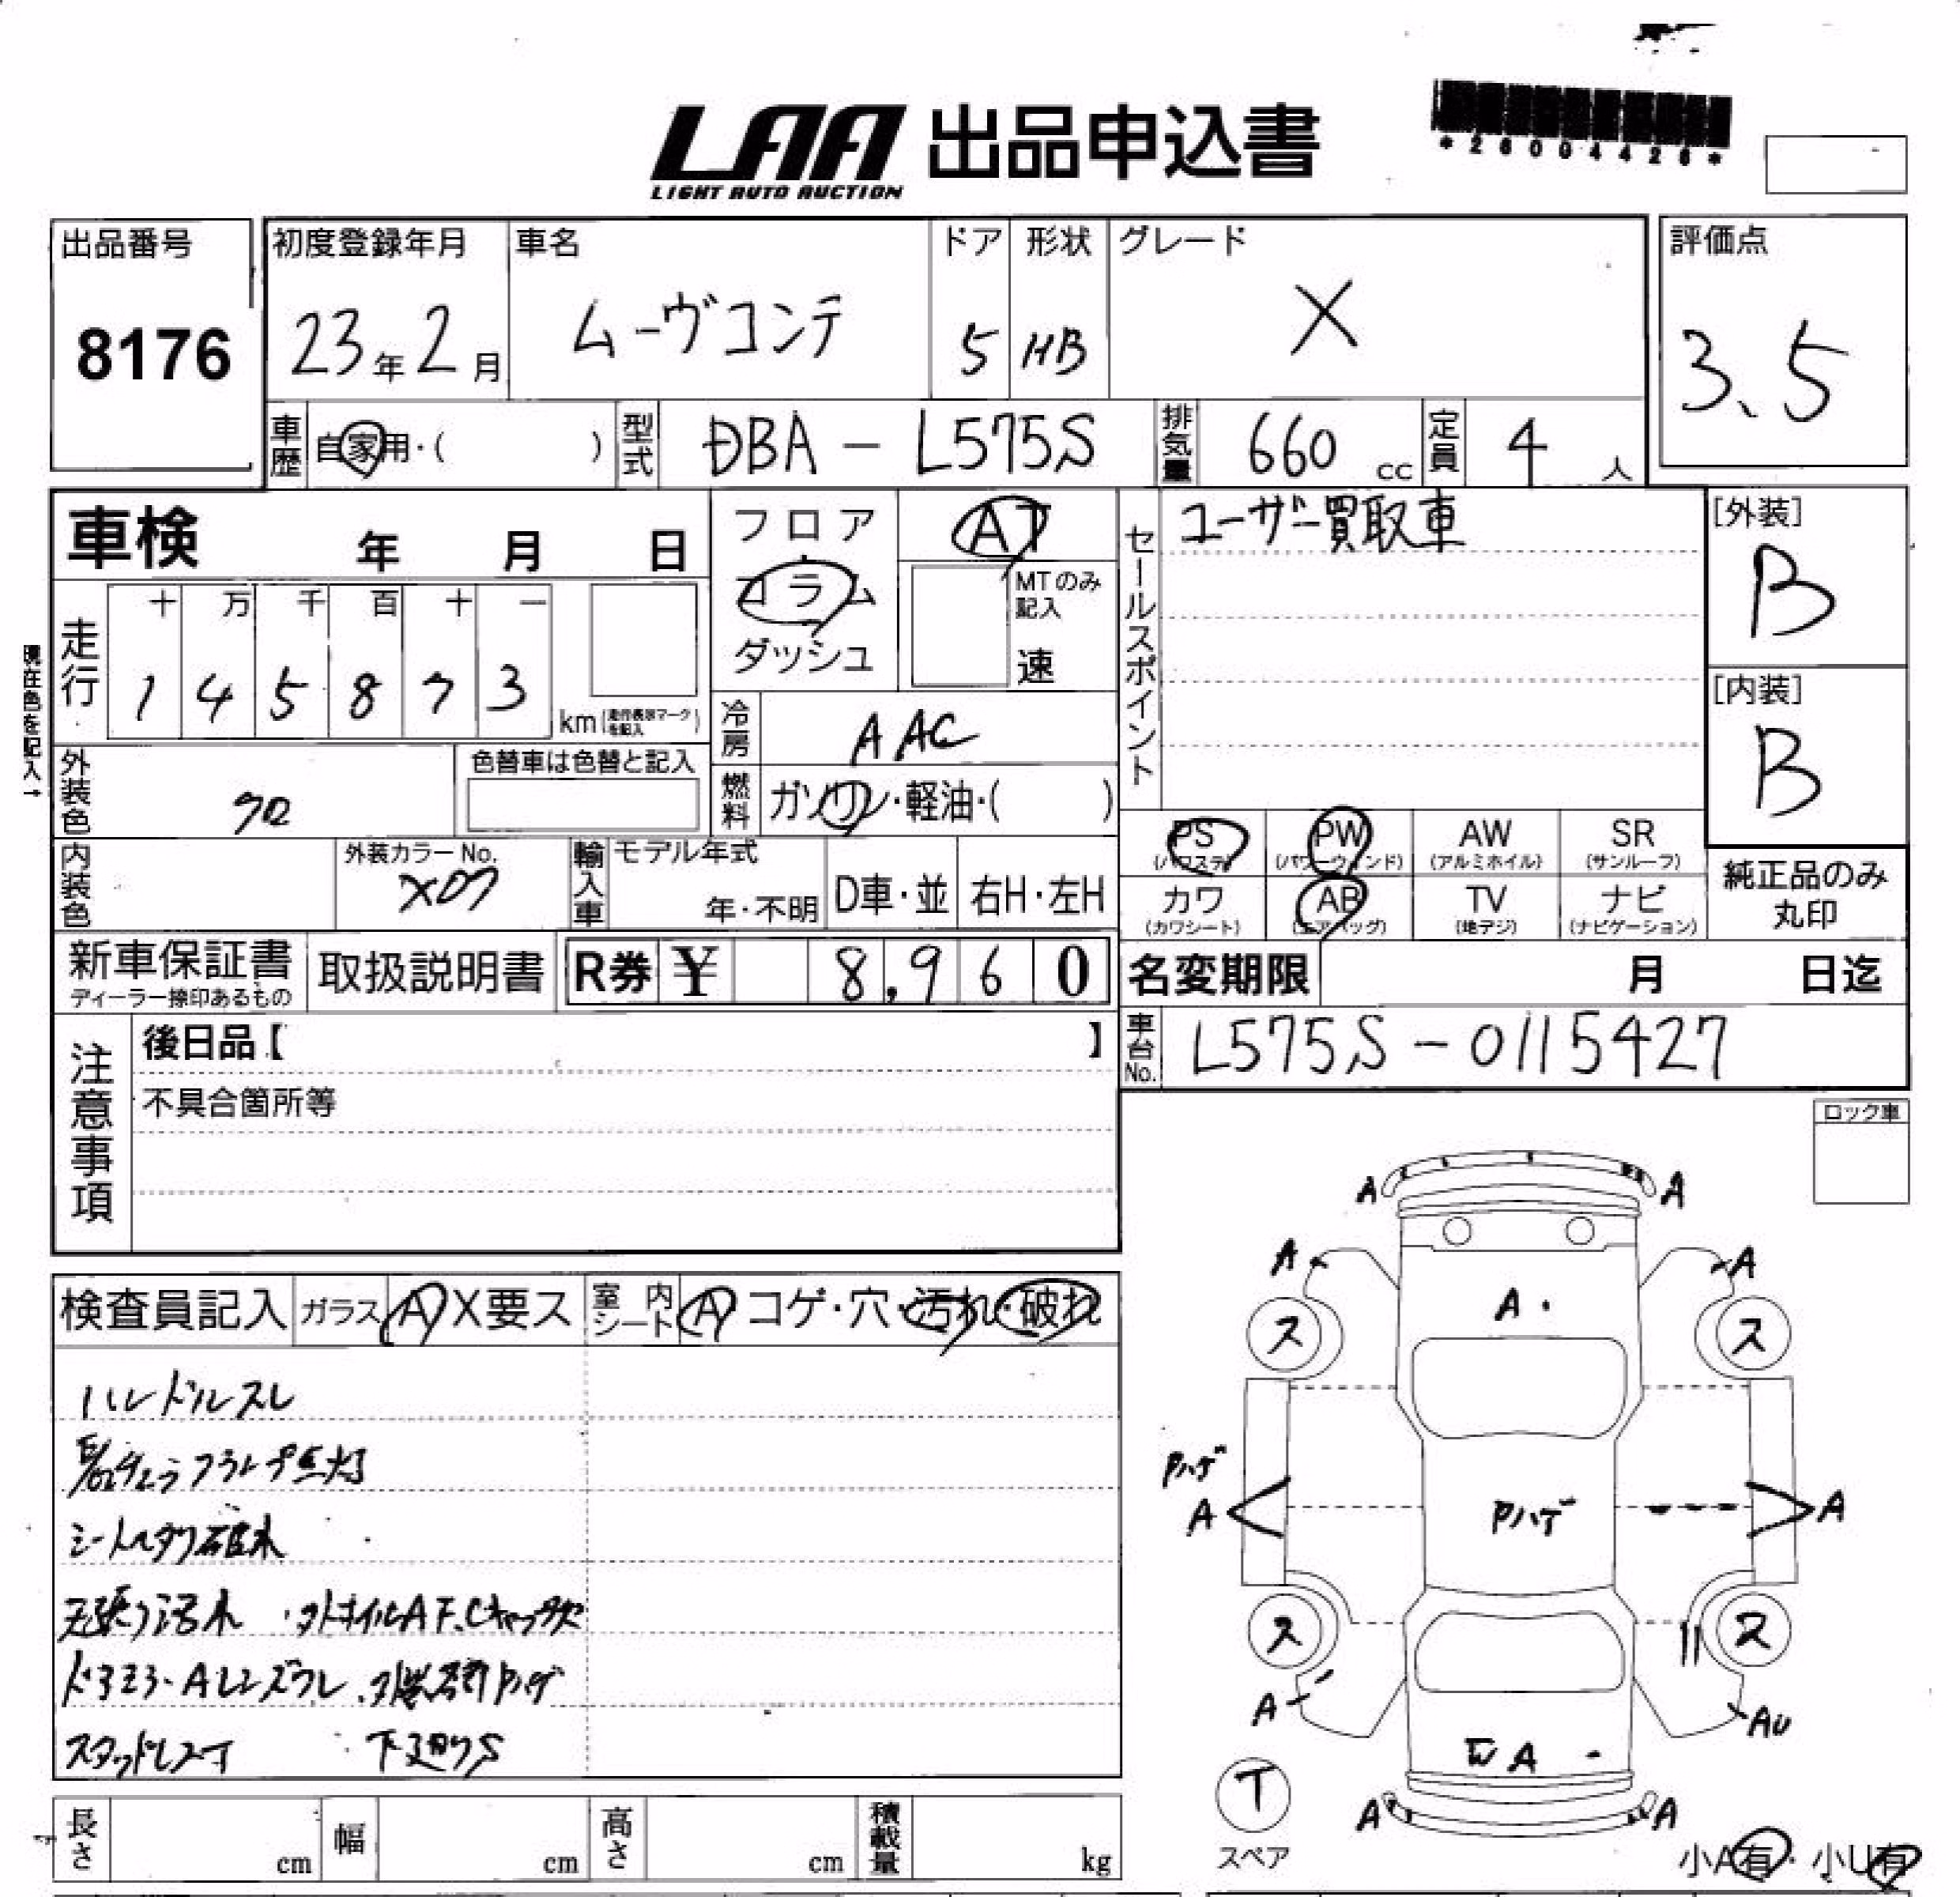 LAA 出品申込書
LIGHT AUTO AUCTION
*26004426*
出品番号
8176
初度登録年月
23年2月
車名
ムーヴコンテ
ドア
5
形状
HB
グレード
X
評価点
3.5
車歴 自家用・( )
型式 DBA-L575S
排気量 660 cc
定員 4 人
車検 年 月 日
フロア
コラム
ダッシュ
AT
MTのみ記入
速
走行
十 万 千 百 十 一
1 4 5 8 7 3
km(走行表示マークを記入)
現在色を記入→
冷房 AAC
外装色 クロ
色替車は色替と記入
燃料 ガソリン・軽油・( )
内装色
外装カラーNo.
X07
輸入車
モデル年式
年・不明
D車・並
右H・左H
セールスポイント
ユーザー買取車
[外装]
B
[内装]
B
PS (パワステ)
PW (パワーウィンド)
AW (アルミホイル)
SR (サンルーフ)
カワ (カワシート)
AB (エアバッグ)
TV (地デジ)
ナビ (ナビゲーション)
純正品のみ
丸印
新車保証書
ディーラー捺印あるもの
取扱説明書
R券 ¥ 8,960
名変期限 月 日迄
車台No. L575S-0115427
注意事項
後日品【 】
不具合箇所等
ロック車
検査員記入
ガラス A X要ス
室内シート A コゲ・穴・汚れ・破れ
ハンドルスレ
シートヘタリ破れ
天張り汚れ
スタッドレス
下廻りS
A A
A A
A・
ス ス
Pハゲ
A Pハゲ A
ス ス
A AU
A
A A
T
スペア
小A有・小U有
長さ cm
幅 cm
高さ cm
積載量 kg